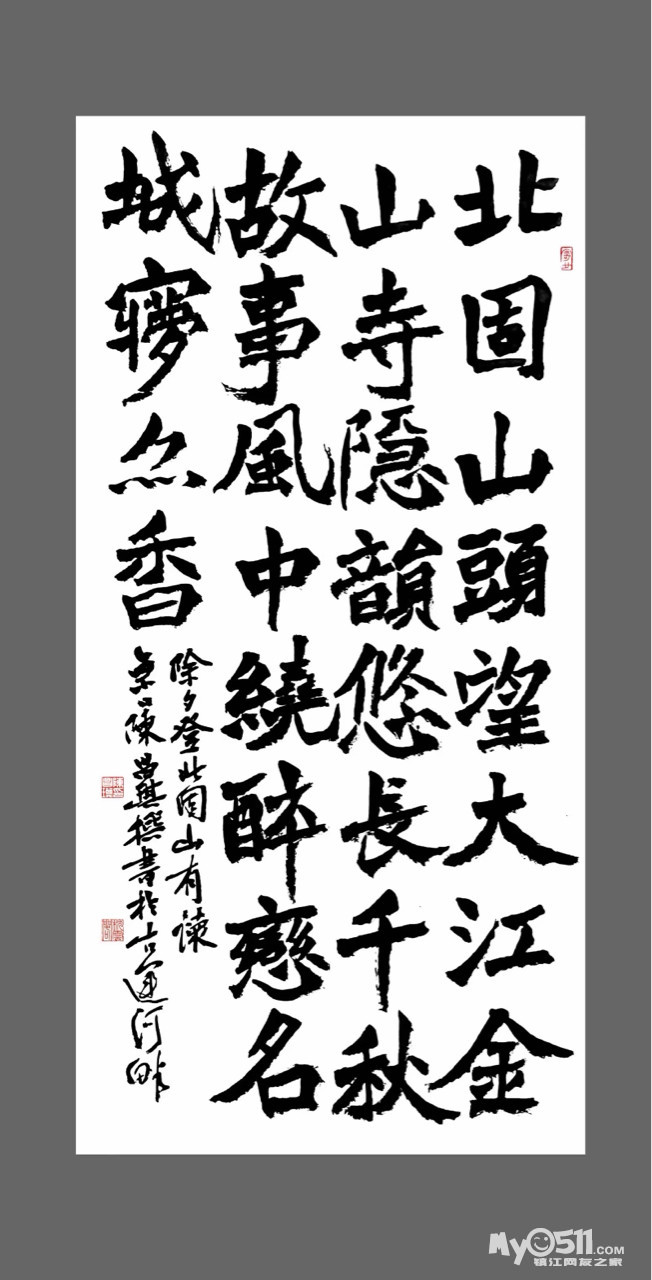 北固山頭望大江金
山寺隐韻悠長千秋
故事風中繞醉戀名
城㝱亦香
除夕登北固山有
京口陳撰書於古運河畔
My0511.COM
镇江网友之家